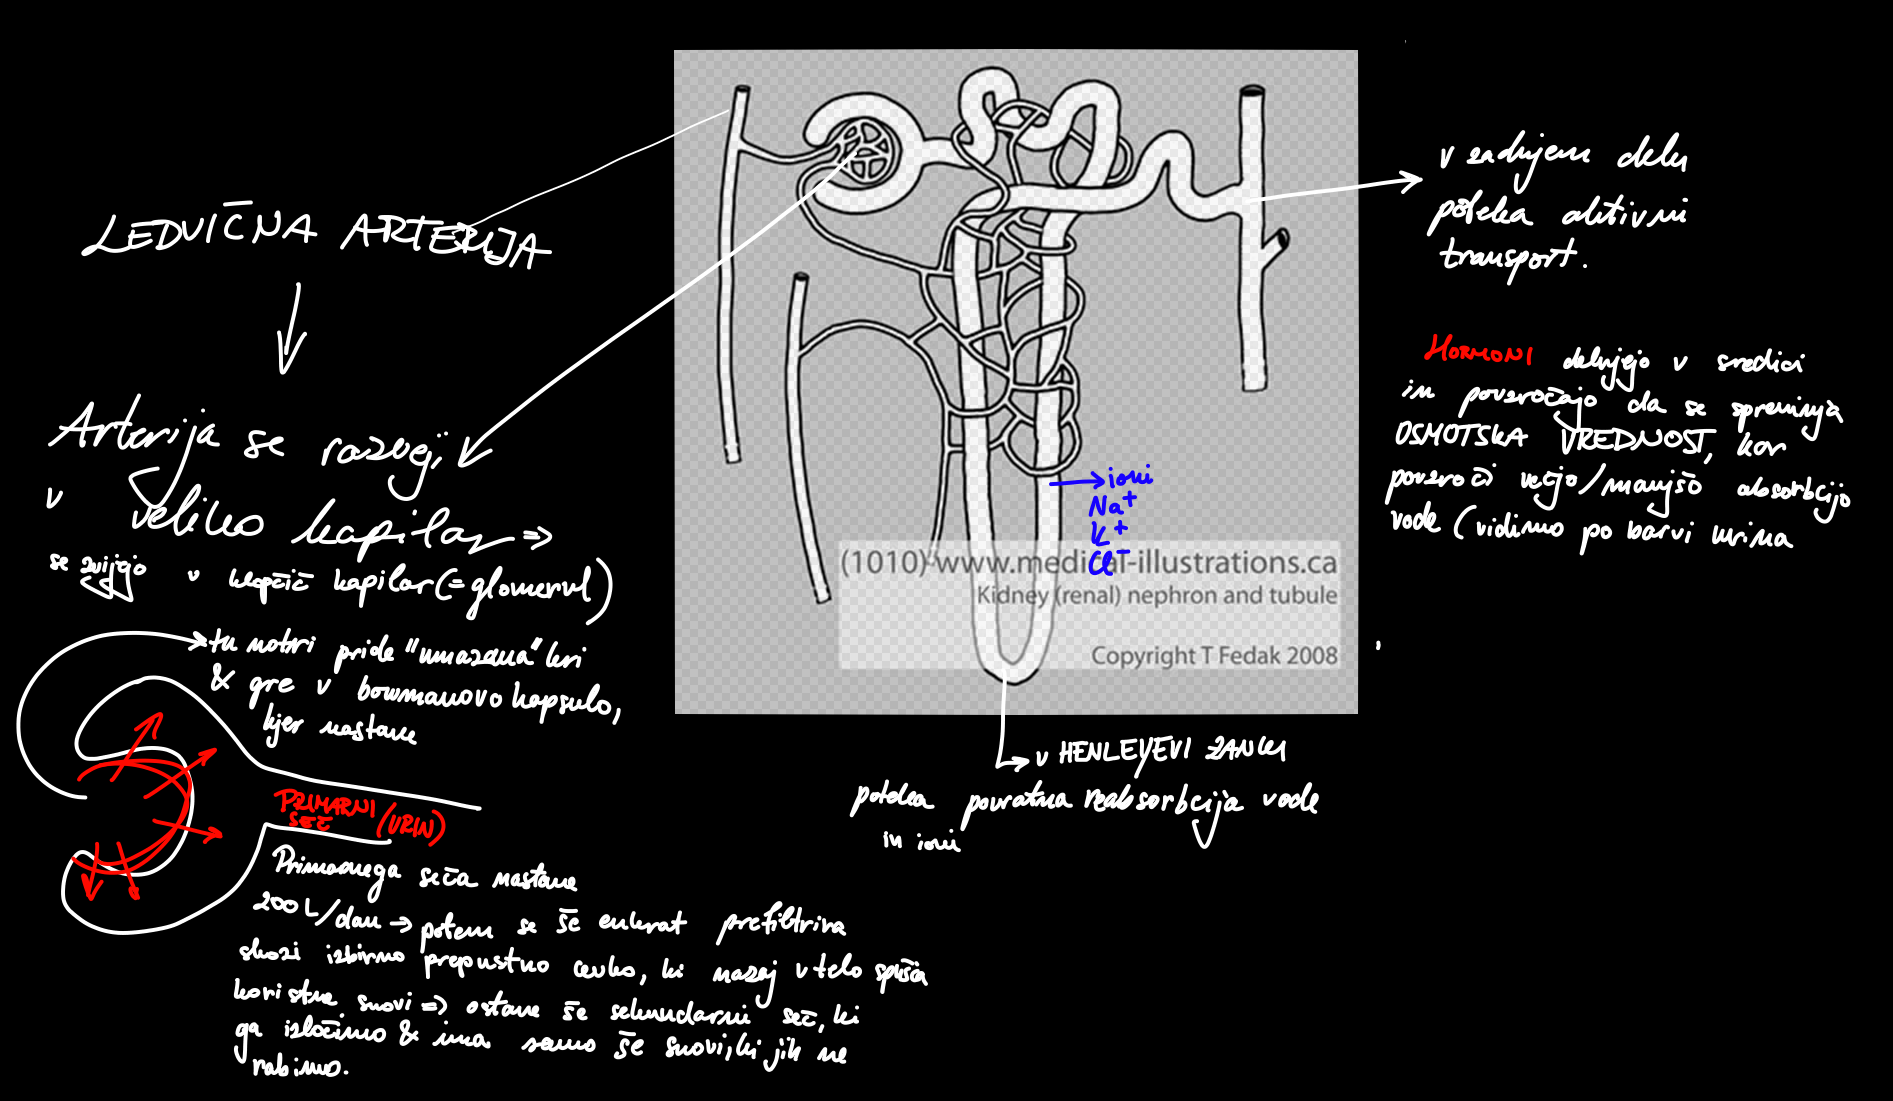 LEDVIČNA ARTERIJA
Arterija se razveji
v veliko kapilar ⇒
se zvijejo v klopčič kapilar (= glomerul)
→ tu notri pride "umazana" kri
& gre v bowmanovo kapsulo,
kjer nastane
PRIMARNI
SEČ (URIN)
Primarnega seča nastane
200L/dan → potem se še enkrat prefiltrira
skozi izbirno prepustno cevko, ki nazaj v telo spušča
koristne snovi ⇒ ostane še sekundarni seč, ki
ga izločimo & ima samo še snovi, ki jih ne
rabimo.
→ ioni
Na+
K+
Cl-
(1010) www.medical-illustrations.ca
Kidney (renal) nephron and tubule
Copyright T Fedak 2008
→ v HENLEYEVI ZANKI
poteka povratna reabsorbcija vode
in ioni
v zadnjem delu
poteka aktivni
transport.
HORMONI delujejo v sredici
in povzročajo da se spreminja
OSMOTSKA VREDNOST, kar
povzroči večjo/manjšo absorbcijo
vode (vidimo po barvi urina